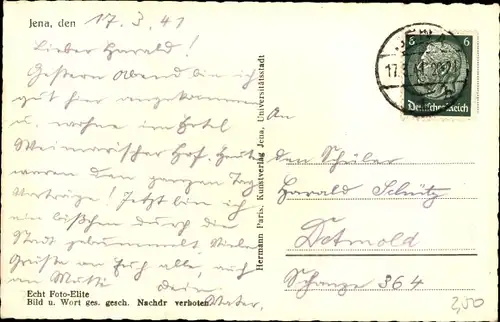 Jena, den 17. 3. 41
Lieber Harald!
Gestern Abend bin ich
gut hier angekommen
u. wohne im Hotel
Weimarischer Hof. Heute
waren den ganzen Tag
Vorträge! Jetzt bin ich
ein bißchen durch die
Stadt gebummelt. Viele
Grüße an Euch alle, auch
an Mutti Dein
Vater.
Echt Foto-Elite
Bild u. Wort ges. gesch. Nachdr verboten.
Hermann Paris, Kunstverlag Jena, Universitätsstadt
6 6
17.3.41
Deutsches Reich
An
den Schüler
Harald Schütz
Detmold
Schanze 364
2,50